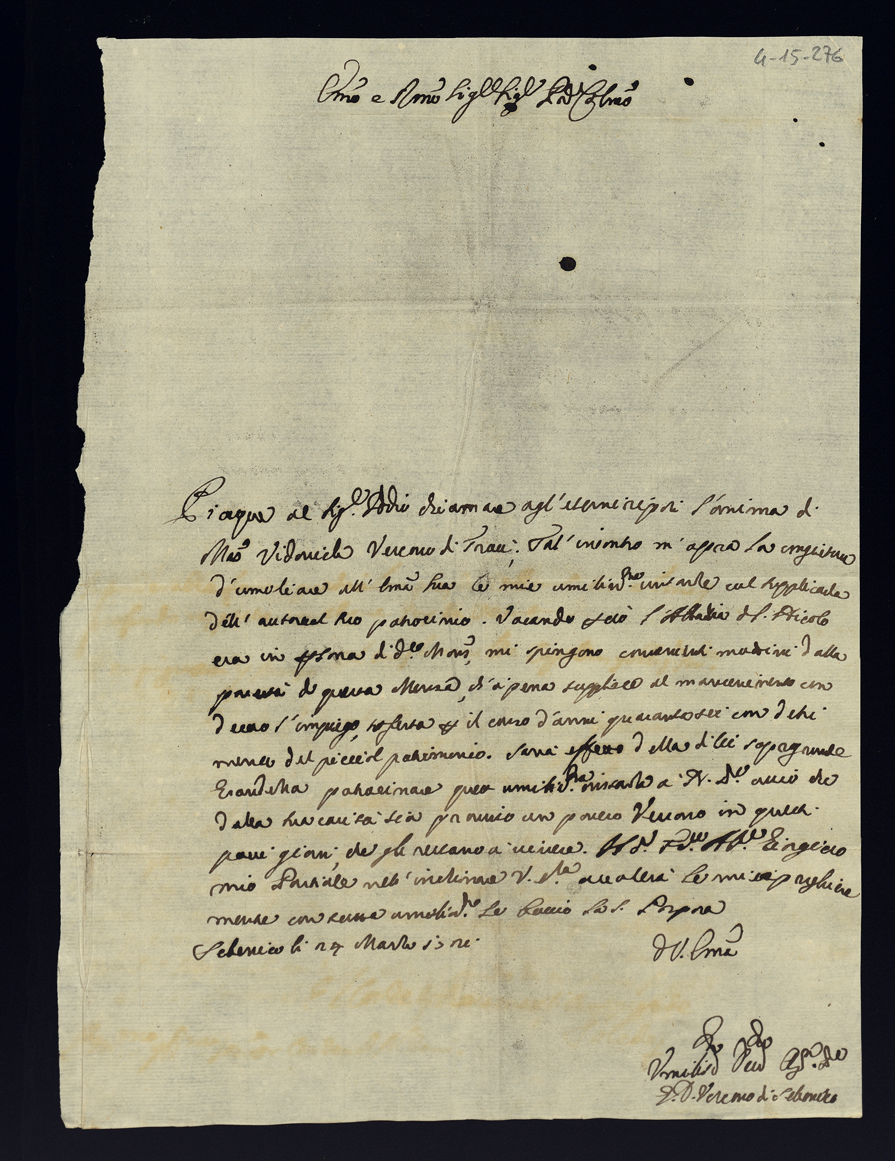 4-15-276
Emõ e Rmõ Sigʳ Sigʳ Pñ Colmõ
Piaque al Sigʳ Iddio chiamare agl'eterni riposi l'anima di
Monˢ Vidovich Vescovo di Traù. Tal' incontro m'apre la congiuntura
d'umoliare all' Emã Sua le mie umiliss.ᵐᵉ instanze col supplicarla
dell' autoreal suo patrocinio. Vacando l'Abbadia di S. Nicolò
era in psona di d.ᵗᵒ Monˢ, mi spingono convenienti motivi dalla
povertà di questa Mensa, ch'à pena supplisce al mantenimento con
decoro l'impiego, sofferta p il corso d'anni quarantasei con detri
mento del picciol patrimonio. Sarà effetto della di lei sopragrande
patrocinare queste umiliss.ᵐᵉ instanze a N. S.ʳᵉ acciò che
dalla sua carità sia proviso un povero Vescovo in questi
pochi giorni, che gli restano a vivere. Il S.ʳ
mio nell' inclinare V. E.ᶻᵃ le mie preghiere
mentre con tutta umiltà le baccio la S. Porpora
Sebenico li 24 Marzo
di V. Emã
Umiliss
Vescovo di Sebenico